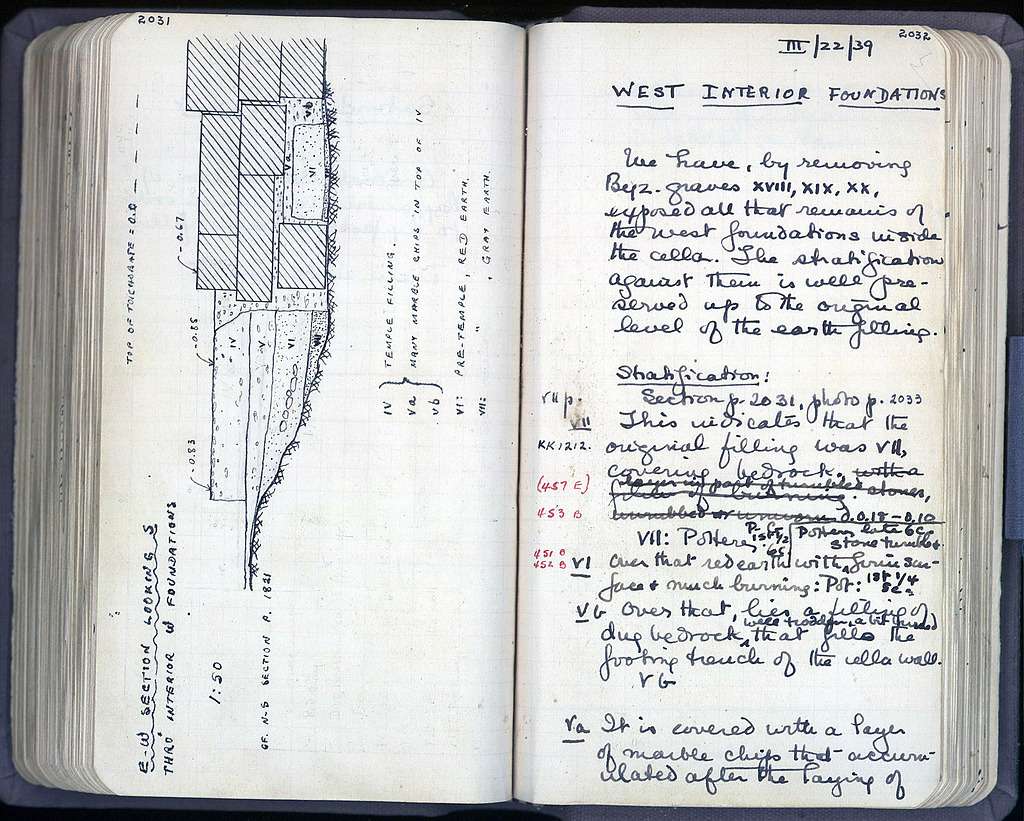 2031
E-W SECTION LOOKING S
THRO' INTERIOR W FOUNDATIONS
1:50
CF. N-S SECTION P. 1821
TOP OF TOICHOBATE = 0.0
-0.67
-0.85
-0.83
IV
V
VI
VII
Va
VI
Vb
IV } TEMPLE FILLING.
Va } MANY MARBLE CHIPS IN TOP OF IV
Vb }
VI: PRE-TEMPLE, RED EARTH.
VII: " , GRAY EARTH.
2032
III/22/39
WEST INTERIOR FOUNDATIONS
We have, by removing
Byz. graves XVIII, XIX, XX,
exposed all that remains of
the west foundations inside
the cella. The stratification
against them is well pre-
served up to the original
level of the earth filling.
Stratification:
Section p. 2031, photo p. 2033
VII p.
VII This indicates that the
KK1212. original filling was VII,
covering bedrock, with a
(457 E) layer in part of tumbled stones,
453 B 0.18-0.10
VII: Pottery late 6c
stone tumble.
451 B
452 B VI Over that red earth with firm sur-
face & much burning: Pot: 1st 1/4
5c.
Vb Over that, lies a filling of
well trodden, a bit burned
dug bedrock, that fills the
footing trench of the cella wall.
Vb
Va It is covered with a layer
of marble chips that accum-
ulated after the laying of